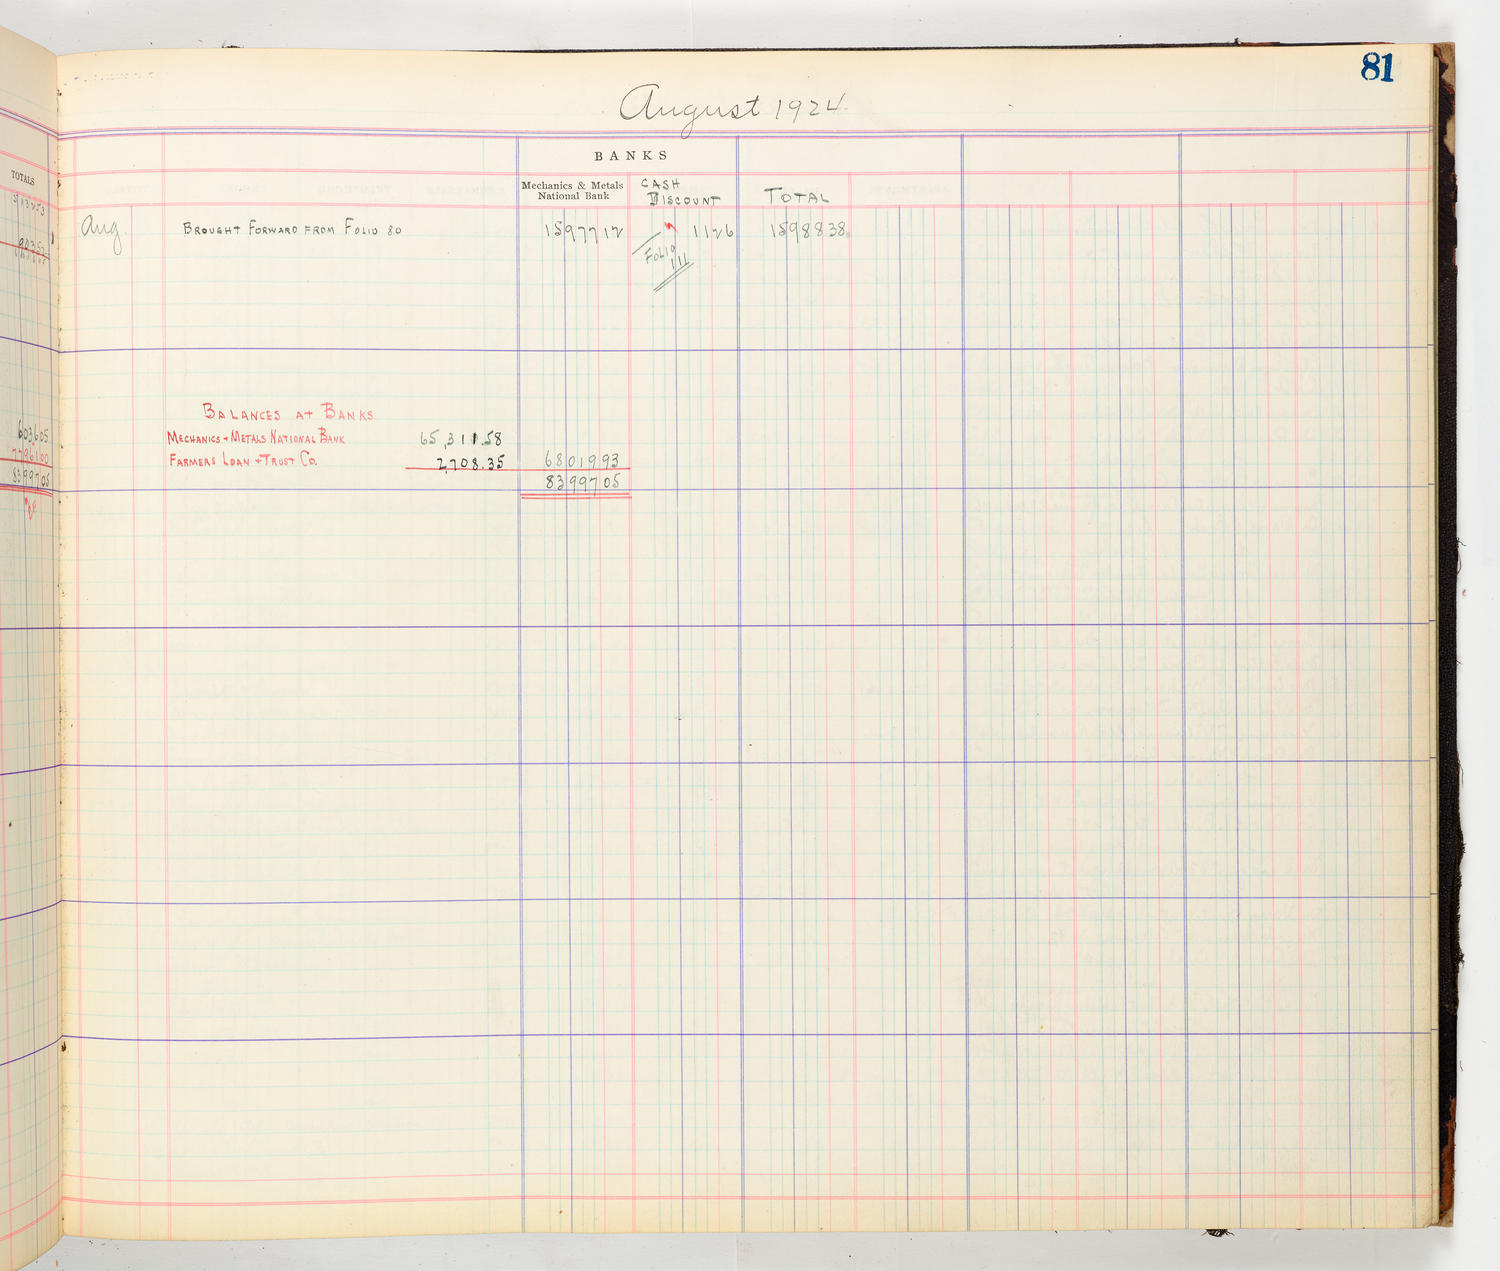 81
August 1924
TOTALS
BANKS
Mechanics & Metals National Bank
CASH DISCOUNT
TOTAL
Aug. BROUGHT FORWARD FROM FOLIO 80 1597712 1126 1598838
FOLIO 111
BALANCES AT BANKS
MECHANICS + METALS NATIONAL BANK 65,311.58
FARMERS LOAN + TRUST CO. 2,708.35 6801993
8399705
603605
7796100
8399705